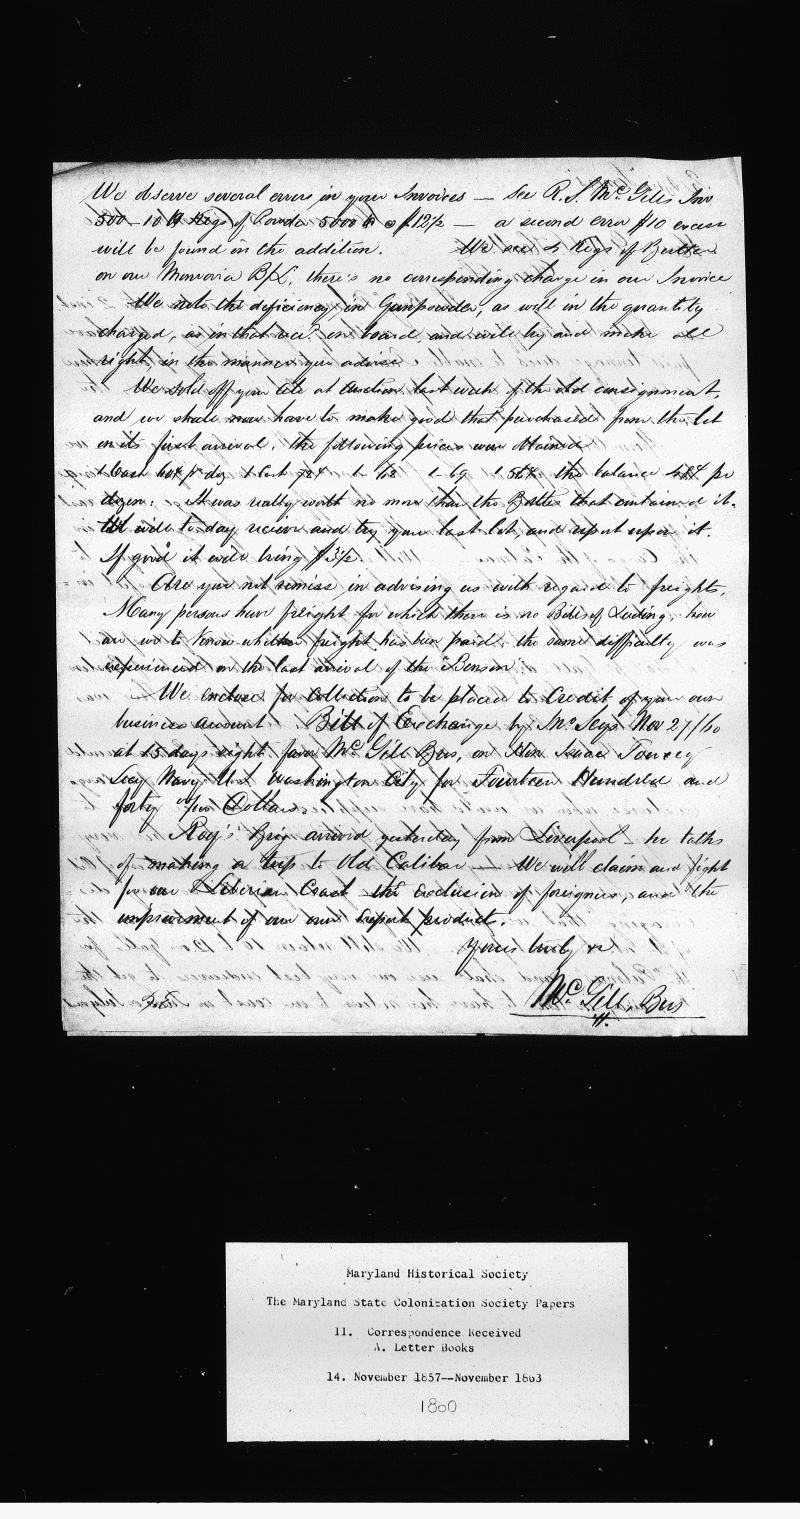 We observe several errors in your Invoices — See R. S. McGill's Inv
500 — 10 lb Kegs of Powder 5000 lb @ $12½ — a second error $10 excess
will be found in the addition. We see 4 Kegs of Butter
on our Monrovia B/L. there's no corresponding charge in our Invoice
We note the deficiency in Gunpowder, as will in the quantity
charged, as in that recd on board and will try and make all
right in the manner you advise
We sold off your Ale at Auction last week of the old consignment,
and we shall now have to make good that purchased from the lot
on its first arrival, the following prices were obtained
1 Cask pr doz 1 Cask 1 — 68 1 — 69 1 56¢ the balance pr
dozen: It was really worth no more than the Bottles that contained it.
We will to day recieve and try your last lot, and report upon it.
If good it will bring $3½.
Are you not remiss in advising us with regard to freights,
Many persons have freight for which there is no Bills of Lading, how
are we to know whether freight has been paid, the same difficulty was
experienced on the last arrival of the "Benson".
We enclose for collection to be placed to Credit of your own
business account. Bill of Exchange by Jno Seys Nov 27/60
at 15 days sight favor McGill Bros, on Hon Isaac Toucey
Secy Navy Washington City for Fourteen Hundred and
forty Dollars
Roy's Brig arrived yesterday from Liverpool — he talks
of making a trip to Old Calibar — We will claim and fight
for our Liberian Coast the exclusion of foreigners, and the
improvement of our own export product.
Yours truly &c
McGill, Bros
Maryland Historical Society
The Maryland State Colonization Society Papers
11. Correspondence Received
A. Letter Books
14. November 1857--November 1863
1860